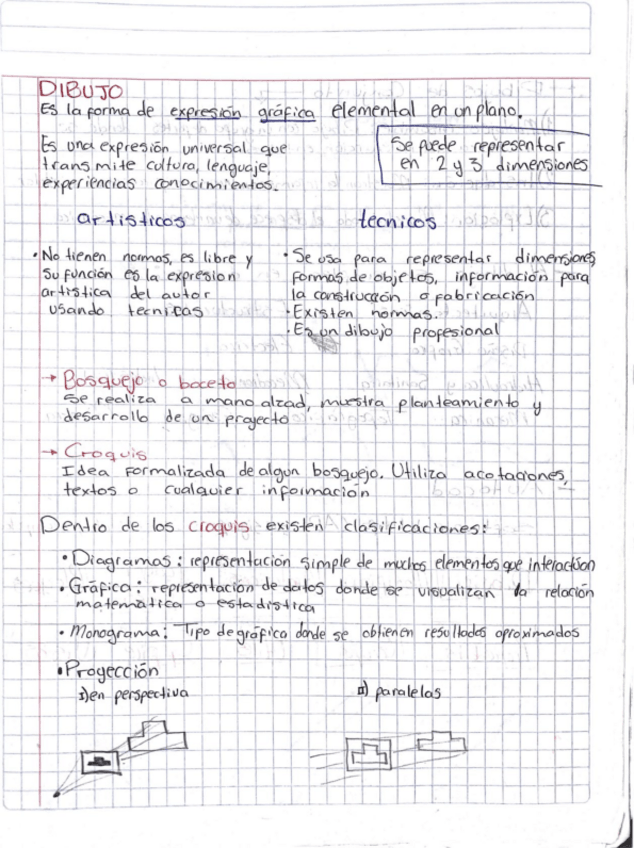 DIBUJO
Es la forma de expresión gráfica elemental en un plano.
Es una expresión universal que
transmite cultura, lenguaje,
experiencias conocimientos.
Se puede representar
en 2 y 3 dimensiones
artisticos
• No tienen normas, es libre y
su función es la expresion
artistica del autor
usando tecnicas
tecnicos
• Se usa para representar dimensiones
formas de objetos, información para
la construcción o fabricación
• Existen normas.
• Es un dibujo profesional
→ Bosquejo o boceto
Se realiza a mano alzad, muestra planteamiento y
desarrollo de un proyecto
→ Croquis
Idea formalizada de algun bosquejo. Utiliza acotaciones,
textos o cualquier información
Dentro de los croquis existen clasificaciones:
• Diagramas: representación simple de muchos elementos que interactúan
• Gráfica: representación de datos donde se visualizan la relación
matemática o estadistica
• Monograma: Tipo de gráfica donde se obtienen resultados aproximados
• Proyección
I) en perspectiva
II) paralelas